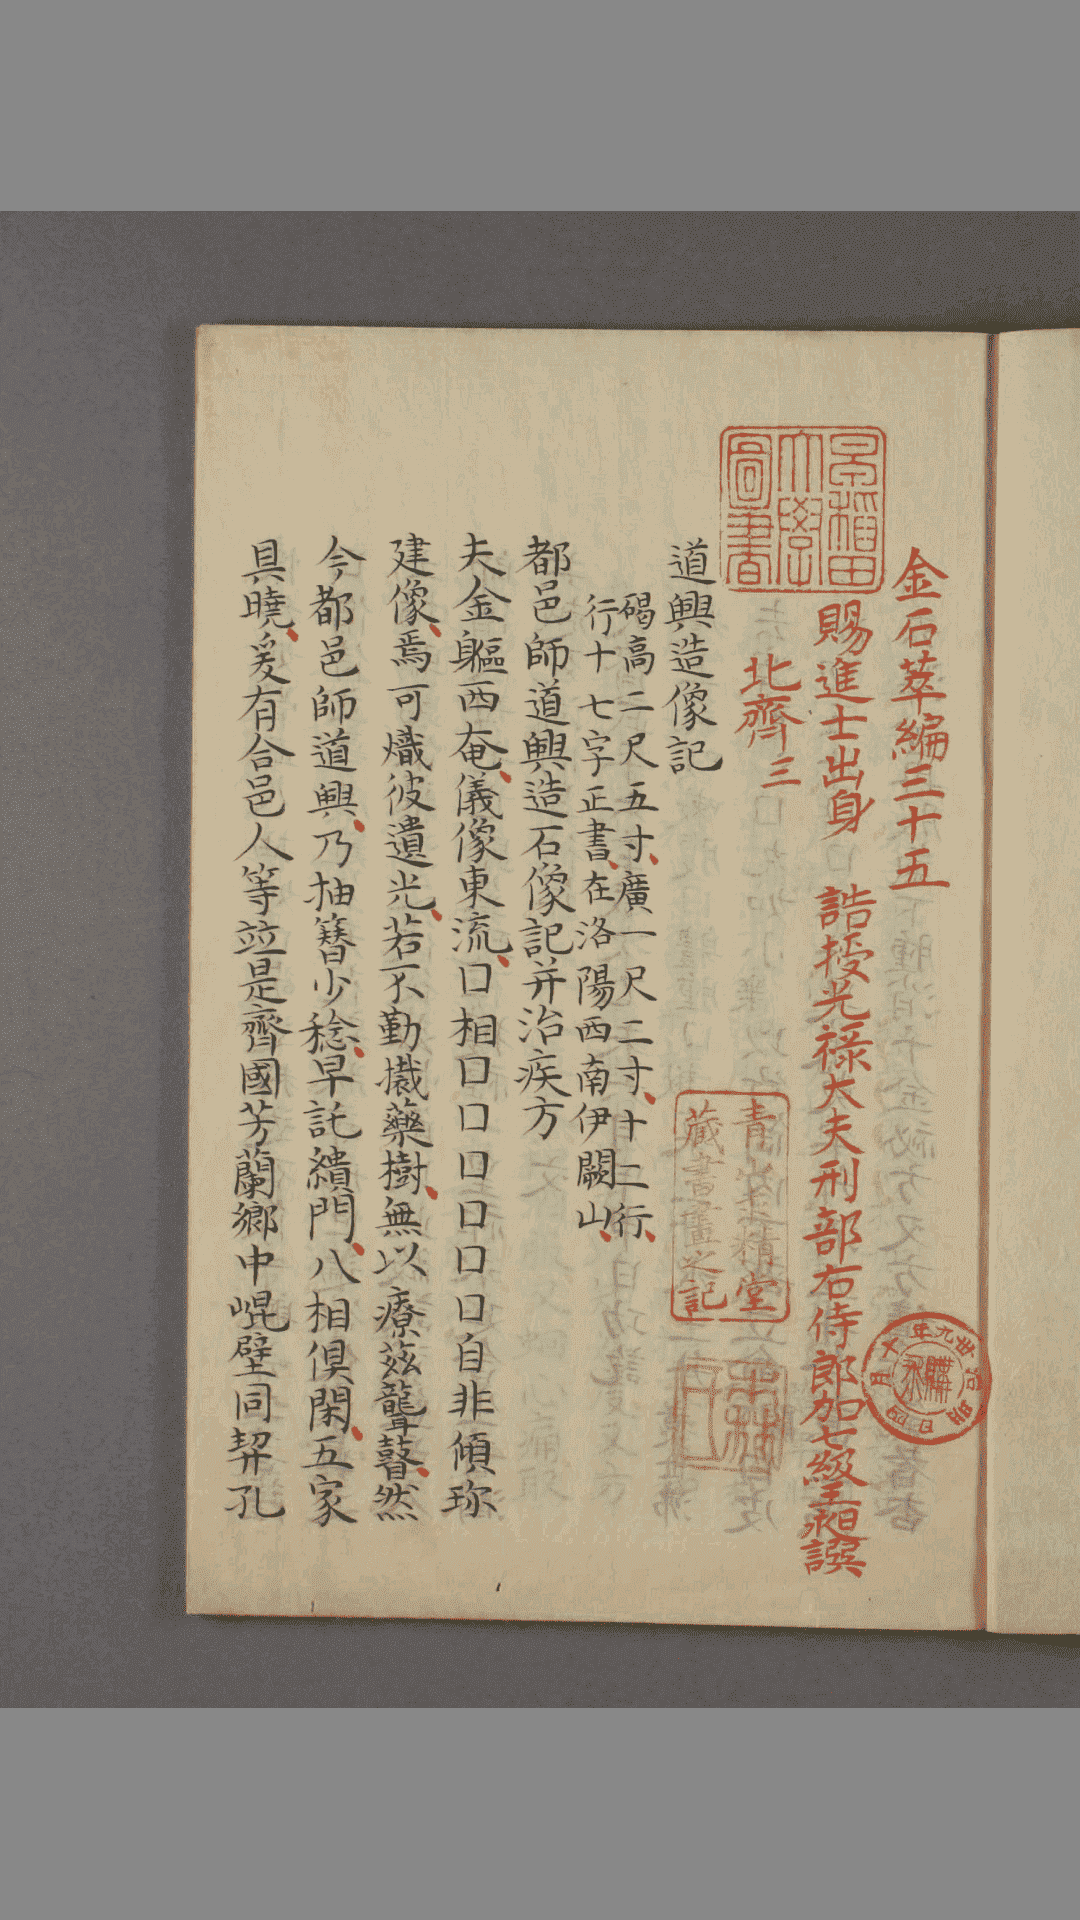 金石萃編三十五
賜進士出身 誥授光祿大夫刑部右侍郎加七級王昶譔
北齊三
道興造像記
碣高二尺五寸廣一尺二寸十二行
行十七字正書在洛陽西南伊闕山
都邑師道興造石像記并治疾方
夫金軀西奄儀像東流口相口口口口口口自非傾珎
建像焉可熾彼遺光若不勤栽藥樹無以療茲聾瞽然
今都邑師道興乃抽簪少稔早託緇門八相俱閑五家
具曉爰有合邑人等竝是齊國芳蘭鄉中崐璧同契孔
早稻田大學圖書
堂
藏書畫之記
明治卅九年十月四日
購求